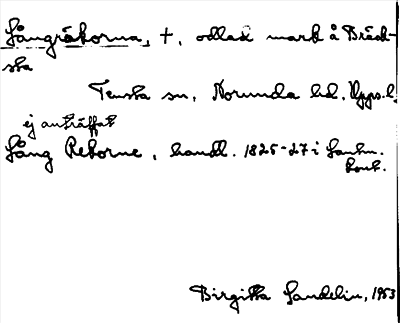 Långräkorna, +, odlad mark å Bräck-
ska
Tensta sn, Norunda hd. Upps.l.
ej anträffat
Lång Rekorne, handl. 1825-27 i Lantm.
kont.
Birgitta Sandelin, 1953